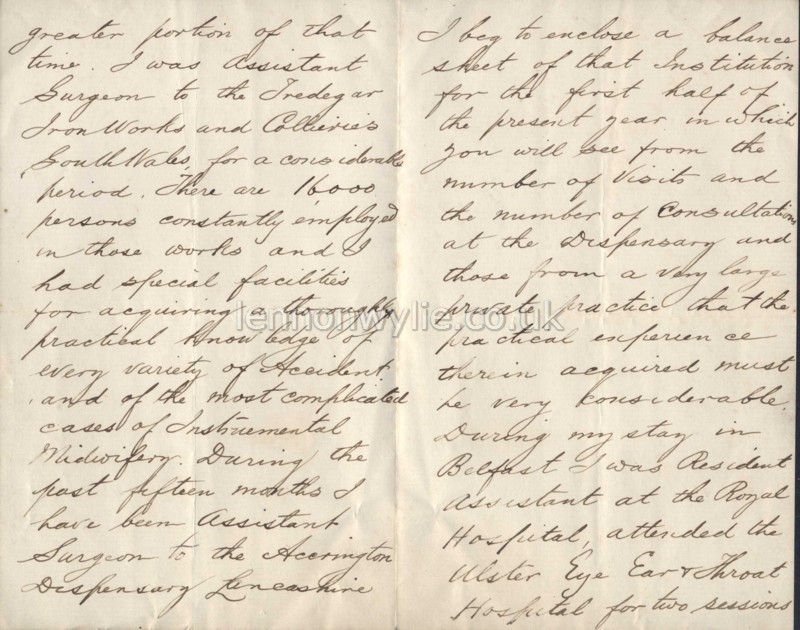 greater portion of that
time. I was Assistant
Surgeon to the Tredegar
Iron Works and Collieries
South Wales, for a considerable
period. There are 16000
persons constantly employed
in those works and I
had special facilities
for acquiring a thoroughly
practical knowledge of
every variety of Accident
and of the most complicated
cases of Instruemental
Midwifery. During the
past fifteen months I
have been Assistant
Surgeon to the Accrington
Dispensary Lencashire
I beg to enclose a balance
sheet of that Institution
for the first half of
the present year in which
you will see from the
number of Visits and
the number of Consultations
at the Dispensary and
those from a very large
private practice that the
practical experience
therein acquired must
be very considerable.
During my stay in
Belfast I was Resident
Assistant at the Royal
Hospital, attended the
Ulster Eye Ear & Throat
Hospital for two sessions
lennonwylie.co.uk